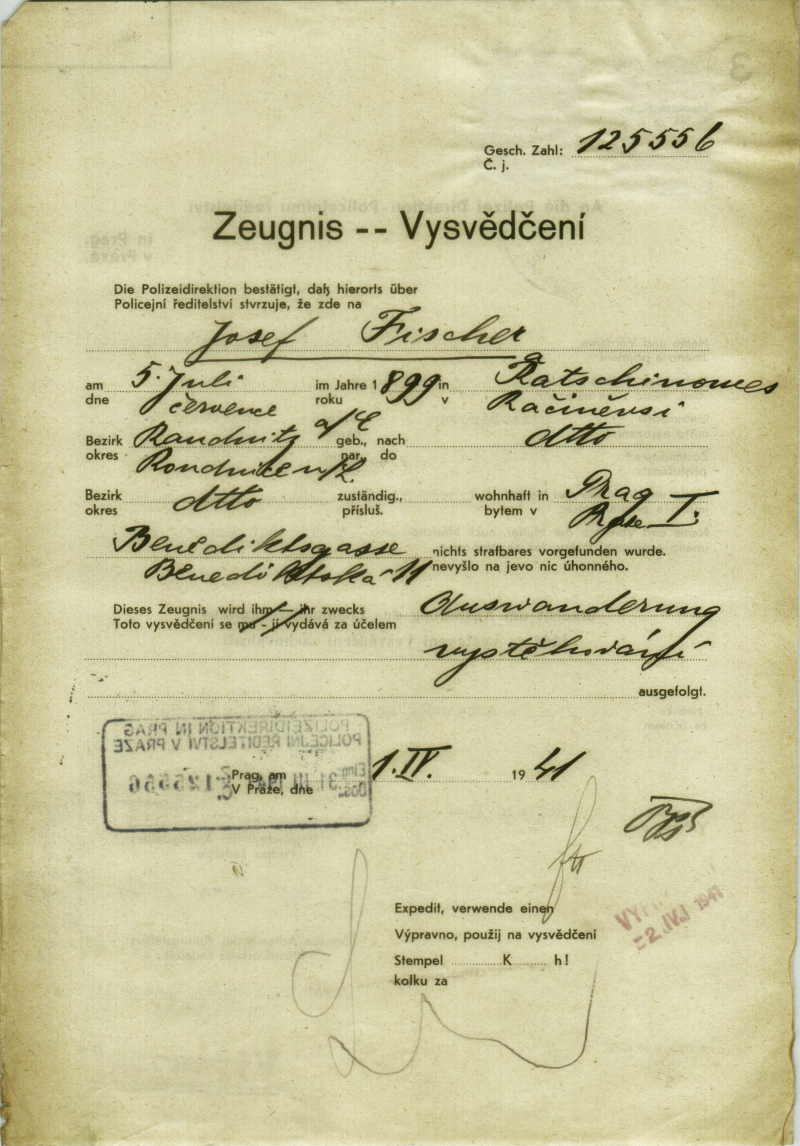 Gesch. Zahl: 125556
Č. j.
Zeugnis -- Vysvědčení
Die Polizeidirektion bestätigt, daß hierorts über
Policejní ředitelství stvrzuje, že zde na
Josef Fischer
am 5. Juli im Jahre 1899 in Ratschinowes
dne července roku v Račiněvsi
Bezirk Raudnitz a/E geb., nach dtto
okres Roudnice n/L. nar., do
Bezirk dtto zuständig., wohnhaft in Prag
okres přísluš. bytem v Praze I.
Benediktsgasse nichts strafbares vorgefunden wurde.
Benediktská 11 nevyšlo na jevo nic úhonného.
Dieses Zeugnis wird ihm — ihr zwecks Auswanderung
Toto vysvědčení se mu - jí vydává za účelem
vystěhování
ausgefolgt.
POLIZEIDIREKTION IN PRAG
POLICEJNÍ ŘEDITELSTVÍ V PRAZE
125556
Prag, am 1. IV. 1941
V Praze, dne
Expedit, verwende einen
Výpravno, použij na vysvědčení
Stempel K h!
kolku za